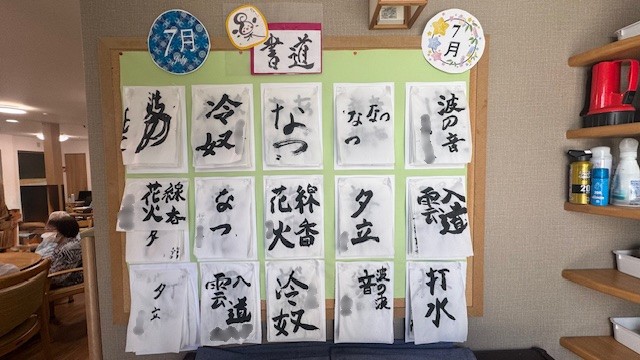 7月
July
書道
7月
冷奴
なつ
なつ
なつ
波の音
線香
花火
夕
なつ
線香
花火
夕立
入道
雲
夕立
入道
雲
冷奴
波の
音
打水